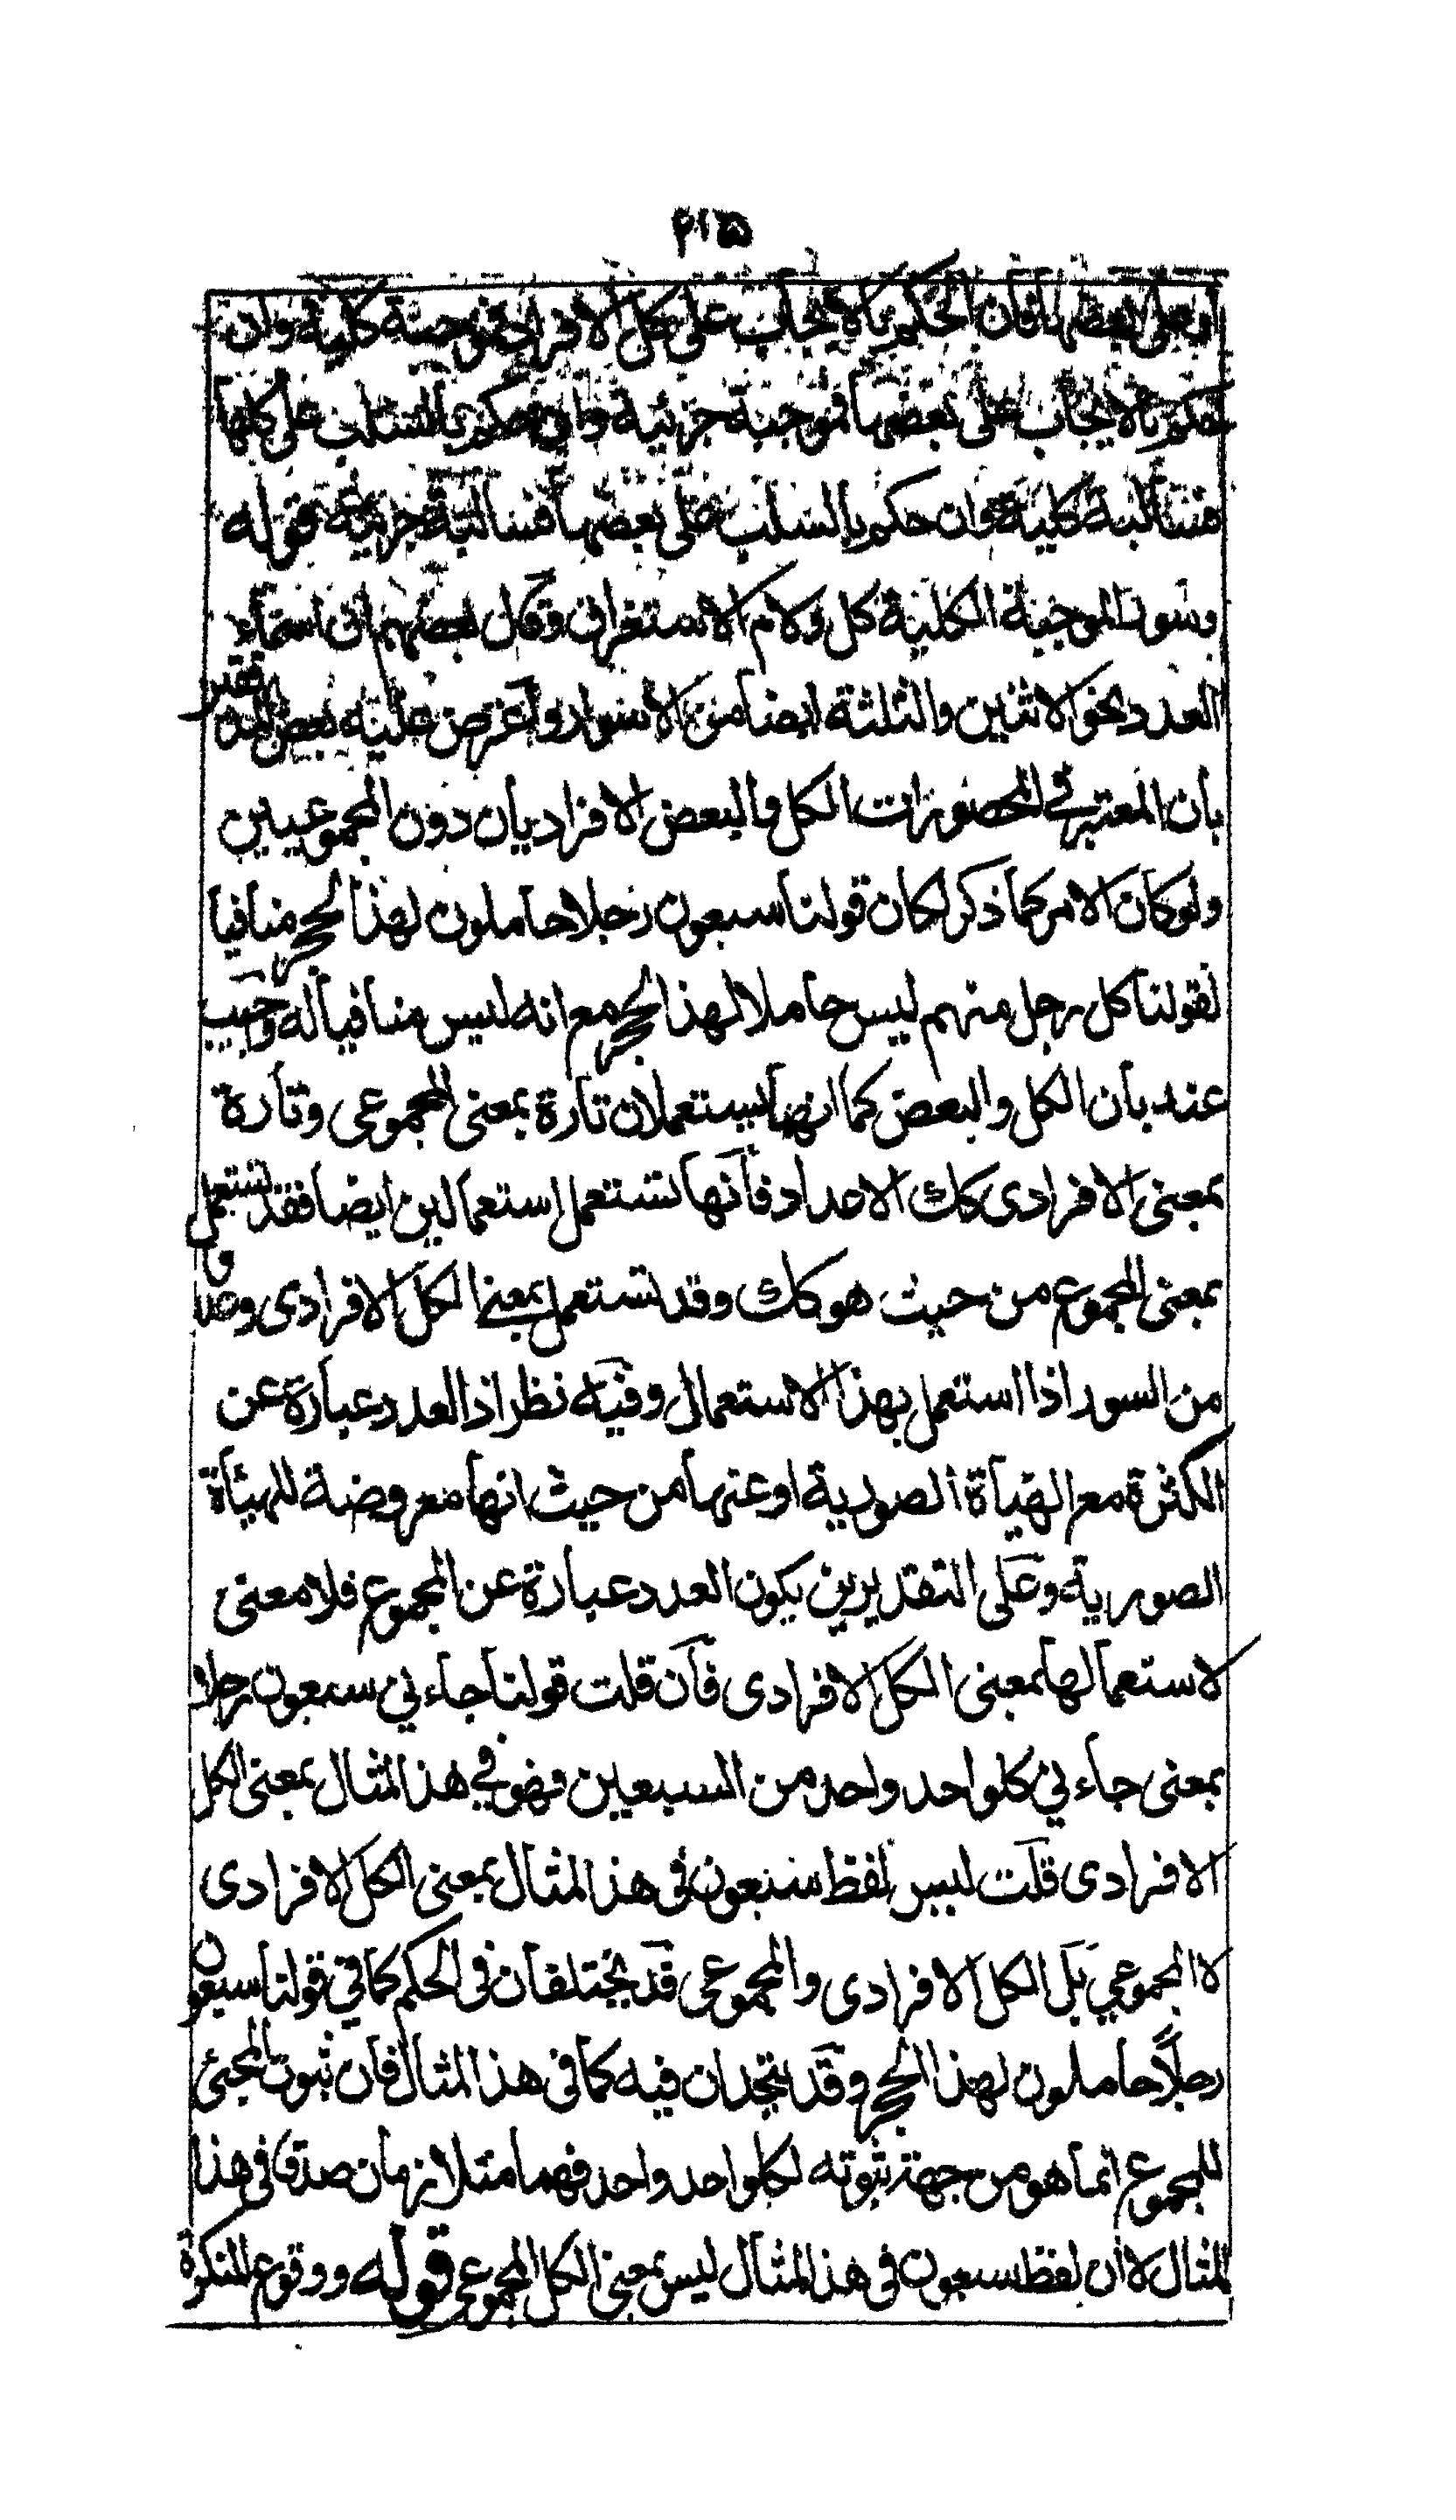 ٢١٥
او على بعضها فان الحكم بالايجاب على كل الافراد فموجبة كلية وان
حكم بالايجاب على بعضها فموجبة جزئية وان حكم بالسلب على كلها
فسالبة كلية وان حكم بالسلب على بعضها فسالبة جزئية قوله
وسور الموجبة الكلية كل ولام الاستغراق وقال بعضهم ان اسماء
العدد نحو الاثنين والثلثة ايضا من الاسوار واعترض عليه بعض
بان المعتبر في المحصورات الكل والبعض الافراديان دون المجموعيين
ولو كان الامر كما ذكر لكان قولنا سبعون رجلا حاملون لهذا الحجر منافيا
لقولنا كل رجل منهم ليس حاملا لهذا الحجر مع انه ليس منافيا له واجيب
عنه بان الكل والبعض كما انهما يستعملان تارة بمعنى المجموعى وتارة
بمعنى الافرادى كك الاعداد فانها تستعمل استعمالين ايضا فقد تستعمل
بمعنى المجموع من حيث هو كك وقد تستعمل بمعنى الكل الافرادى وهى
من السور اذا استعمل بهذا الاستعمال وفيه نظر اذ العدد عبارة عن
الكثرة مع الهيأة الصورية او عنها من حيث انها معروضة للهيأة
الصورية وعلى التقديرين يكون العدد عبارة عن المجموع فلا معنى
لاستعمالها بمعنى الكل الافرادى فان قلت قولنا جاءنى سبعون رجلا
بمعنى جاءنى كلواحد واحد من السبعين فهو في هذا المثال بمعنى الكل
الافرادى قلت ليس لفظ سبعون في هذا المثال بمعنى الكل الافرادى
لا المجموعي بل الكل الافرادى والمجموعى قد يختلفان فى الحكم كما في قولنا سبعون
رجلاً حاملون لهذا الحجر وقد يتحدان فيه كما فى هذا المثال فان ثبوت المجئ
للمجموع انما هو من جهة ثبوته لكلواحد واحد فهما متلازمان صدقا فى هذا
المثال لا ان لفظ سبعون فى هذا المثال ليس بمعنى الكل المجموعى قوله ووقوع النكرة